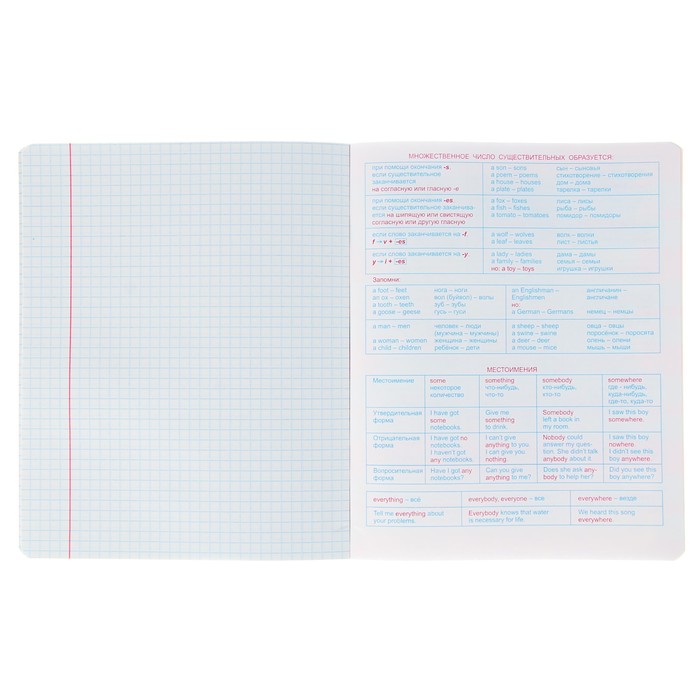 МНОЖЕСТВЕННОЕ ЧИСЛО СУЩЕСТВИТЕЛЬНЫХ ОБРАЗУЕТСЯ:
при помощи окончания -s,
если существительное
заканчивается
на согласную или гласную -e
a son – sons
a poem – poems
a house – houses
a plate – plates
сын – сыновья
стихотворение – стихотворения
дом – дома
тарелка – тарелки
при помощи окончания -es,
если существительное заканчива-
ется на шипящую или свистящую
согласную или другую гласную
a fox – foxes
a fish – fishes
a tomato – tomatoes
лиса – лисы
рыба – рыбы
помидор – помидоры
если слово заканчивается на -f,
f → v + -es
a wolf – wolves
a leaf – leaves
волк – волки
лист – листья
если слово заканчивается на -y,
y → i + -es
a lady – ladies
a family – families
но: a toy – toys
дама – дамы
семья – семьи
игрушка – игрушки
Запомни:
a foot – feet
an ox – oxen
a tooth – teeth
a goose – geese
нога – ноги
вол (буйвол) – волы
зуб – зубы
гусь – гуси
an Englishman –
Englishmen
но:
a German – Germans
англичанин –
англичане
немец – немцы
a man – men
a woman – women
a child – children
человек – люди
(мужчина – мужчины)
женщина – женщины
ребёнок – дети
a sheep – sheep
a swine – swine
a deer – deer
a mouse – mice
овца – овцы
поросёнок – поросята
олень – олени
мышь – мыши
МЕСТОИМЕНИЯ
Местоимение
some
некоторое
количество
something
что-нибудь,
что-то
somebody
кто-нибудь,
кто-то
somewhere
где - нибудь,
куда-нибудь,
где-то, куда-то
Утвердительная
форма
I have got
some
notebooks.
Give me
something
to drink.
Somebody
left a book in
my room.
I saw this boy
somewhere.
Отрицательная
форма
I have got no
notebooks.
I haven't got
any notebooks.
I can't give
anything to you.
I can give you
nothing.
Nobody could
answer my ques-
tion. She didn't talk
anybody about it.
I saw this boy
nowhere.
I didn't see this
boy anywhere.
Вопросительная
форма
Have I got any
notebooks?
Can you give
anything to me?
Does she ask any-
body to help her?
Did you see this
boy anywhere?
everything – всё
everybody, everyone – все
everywhere – везде
Tell me everything about
your problems.
Everybody knows that water
is necessary for life.
We heard this song
everywhere.